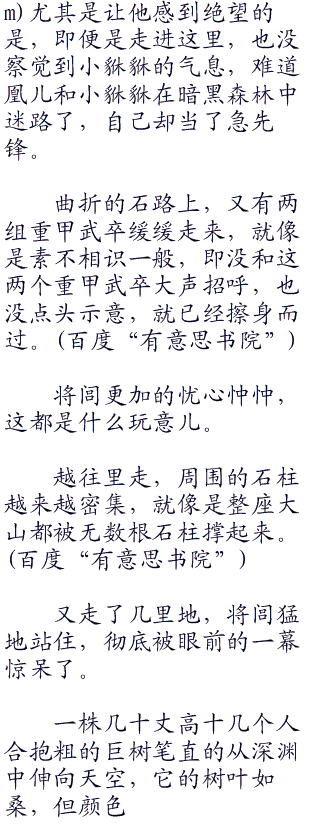 m)尤其是让他感到绝望的
是，即便是走进这里，也没
察觉到小貅貅的气息，难道
凰儿和小貅貅在暗黑森林中
迷路了，自己却当了急先
锋。
曲折的石路上，又有两
组重甲武卒缓缓走来，就像
是素不相识一般，即没和这
两个重甲武卒大声招呼，也
没点头示意，就已经擦身而
过。(百度“有意思书院”)
将闾更加的忧心忡忡，
这都是什么玩意儿。
越往里走，周围的石柱
越来越密集，就像是整座大
山都被无数根石柱撑起来。
(百度“有意思书院”)
又走了几里地，将闾猛
地站住，彻底被眼前的一幕
惊呆了。
一株几十丈高十几个人
合抱粗的巨树笔直的从深渊
中伸向天空，它的树叶如
桑，但颜色